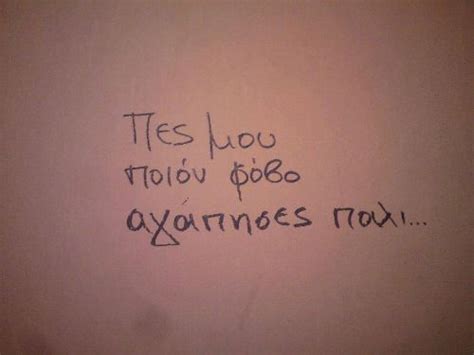 Πες μου
ποιόν φόβο
αγάπησες παλι...